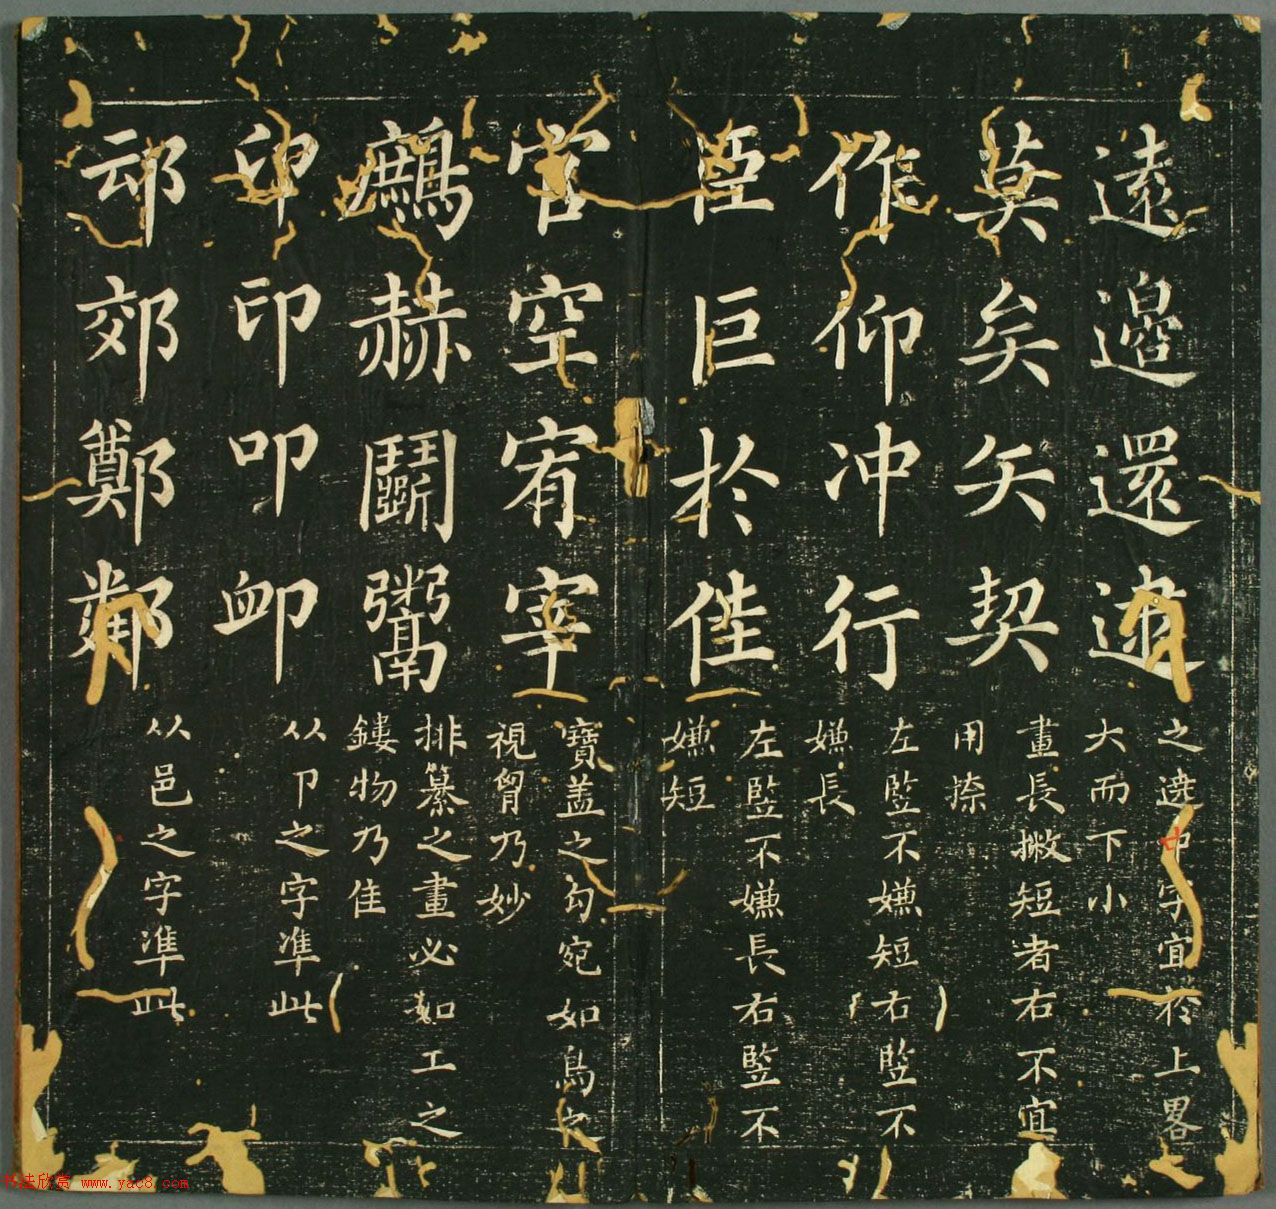 遠邊還逮
之遶中字宜於上畧
大而下小
莫矣矢契
畫長撇短者右不宜
用捺
作仰冲行
左竪不嫌短右竪不
嫌長
臣巨於佳
左竪不嫌長右竪不
嫌短
官空宥宰
寶盖之勾宛如鳥之
視胷乃妙
鷓赫鬬鬻
排纂之畫必如工之
鏤物乃佳
卬印叩卹
从卩之字準此
邧郊鄭鄰
从邑之字準此
书法欣赏 www.yac8.com